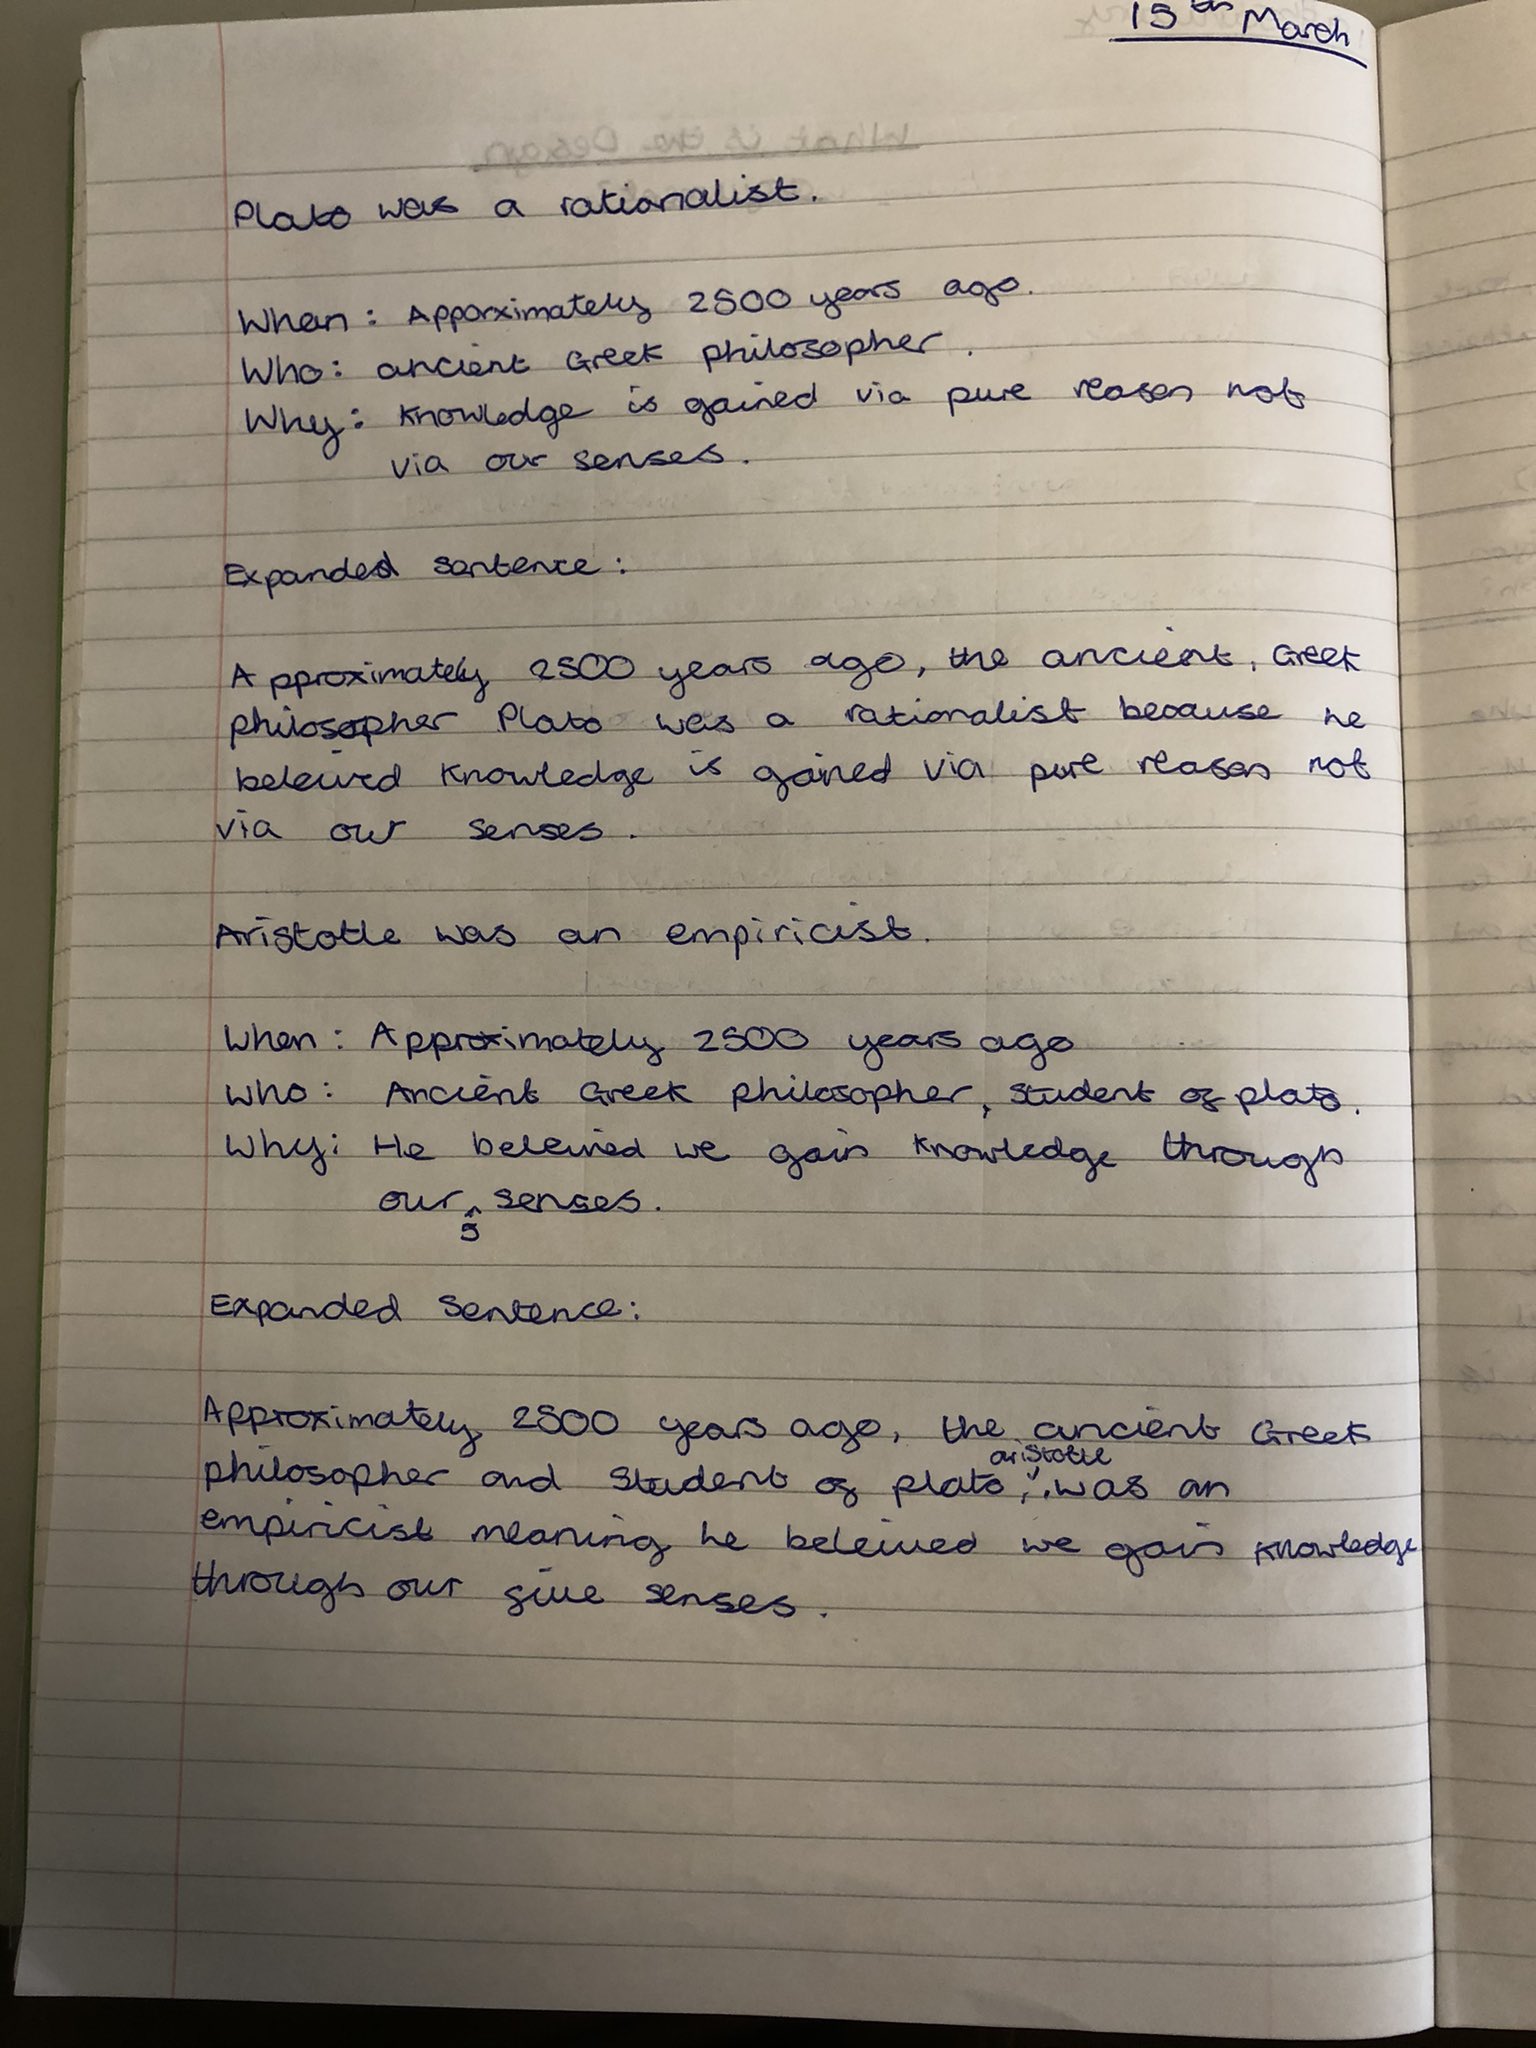 15th March
What is the Design
Plato was a rationalist.
When: Apporximately 2500 years ago.
Who: ancient Greek philosopher.
Why: Knowledge is gained via pure reason not
via our senses.
Expanded sentence:
Approximately 2500 years ago, the ancient, Greek
philosopher Plato was a rationalist because he
beleived knowledge is gained via pure reason not
via our senses.
Aristotle was an empiricist.
When: Approximately 2500 years ago
Who: Ancient Greek philosopher, student of plato.
Why: He beleived we gain knowledge through
our 5 senses.
Expanded Sentence:
Approximately 2500 years ago, the ancient Greek
philosopher and student of plato, aristotle, was an
empiricist meaning he beleived we gain knowledge
through our five senses.